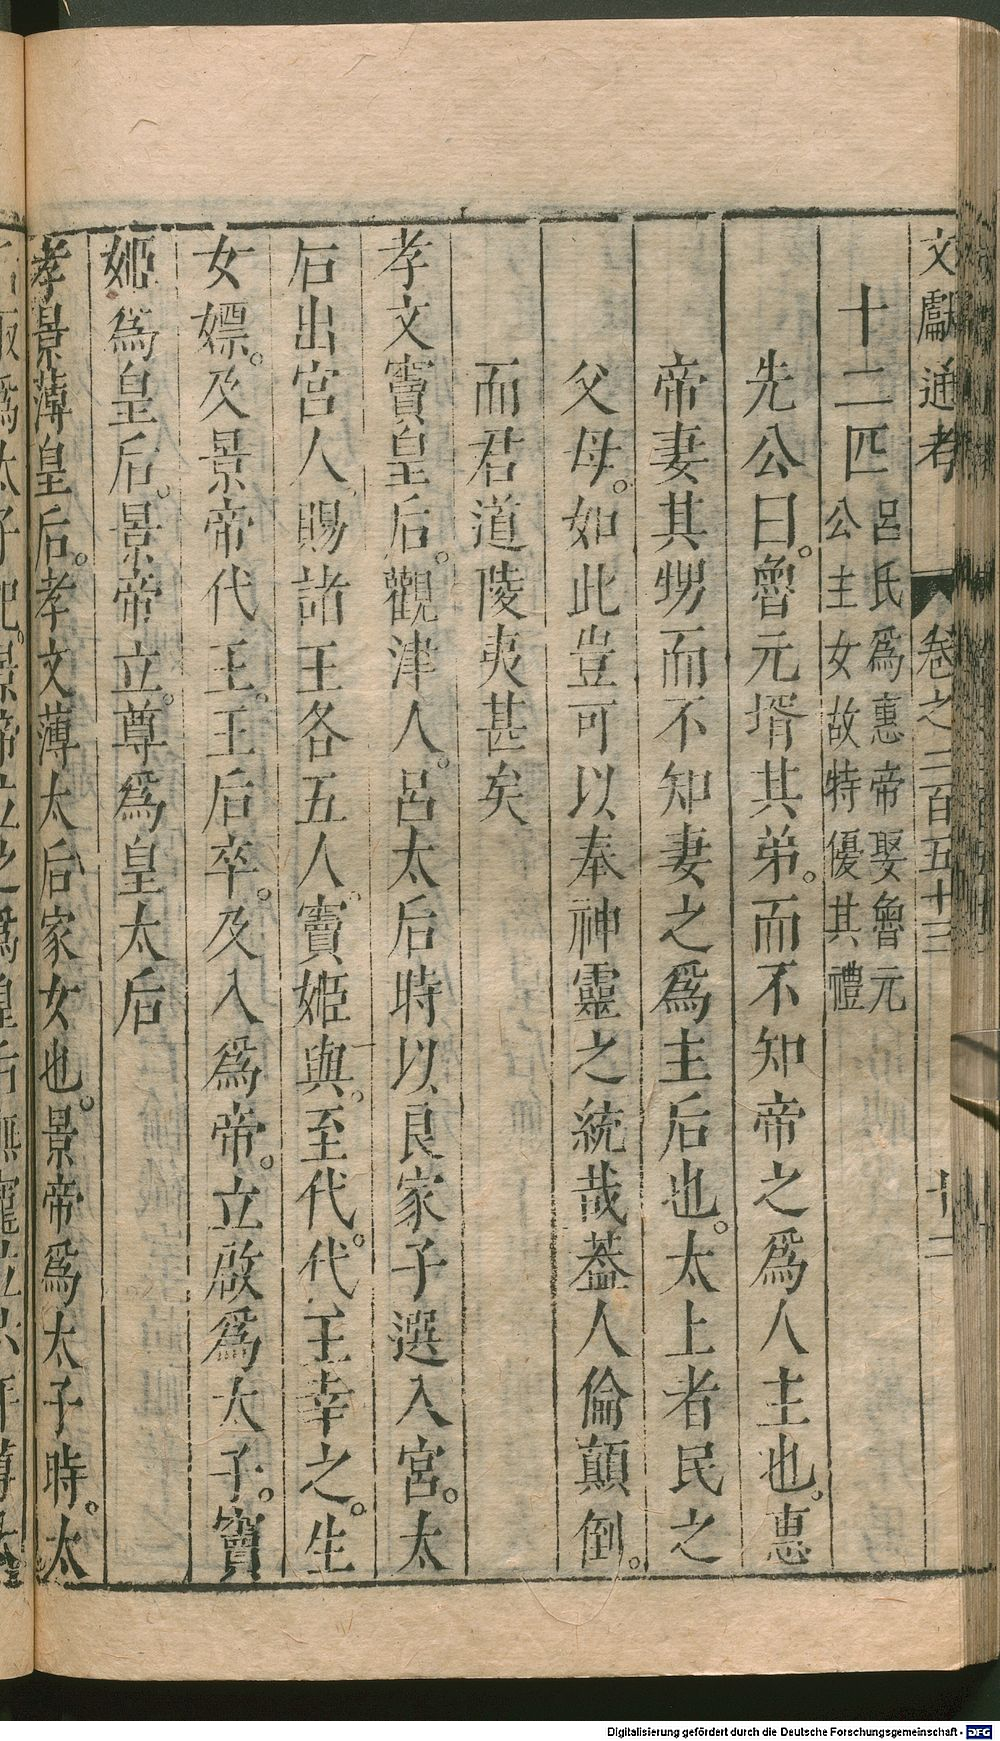 文獻通考 卷之二百五十三 十二
十二匹 呂氏爲惠帝娶魯元
公主女故特優其禮
先公曰。魯元壻其弟。而不知帝之爲人主也。惠
帝妻其甥而不知妻之爲主后也。太上者民之
父母。如此豈可以奉神靈之統哉葢人倫顛倒。
而君道陵夷甚矣
孝文竇皇后。觀津人。呂太后時以良家子選入宮。太
后出宮人。賜諸王各五人。竇姬與。至代。代王幸之。生
女嫖。及景帝代王。王后卒。及入爲帝。立啟爲太子。竇
姬爲皇后。景帝立。尊爲皇太后
孝景薄皇后。孝文薄太后家女也。景帝爲太子時。太
后取爲太子妃。景帝立之爲皇后無寵立六年尊太
Digitalisierung gefördert durch die Deutsche Forschungsgemeinschaft - DFG